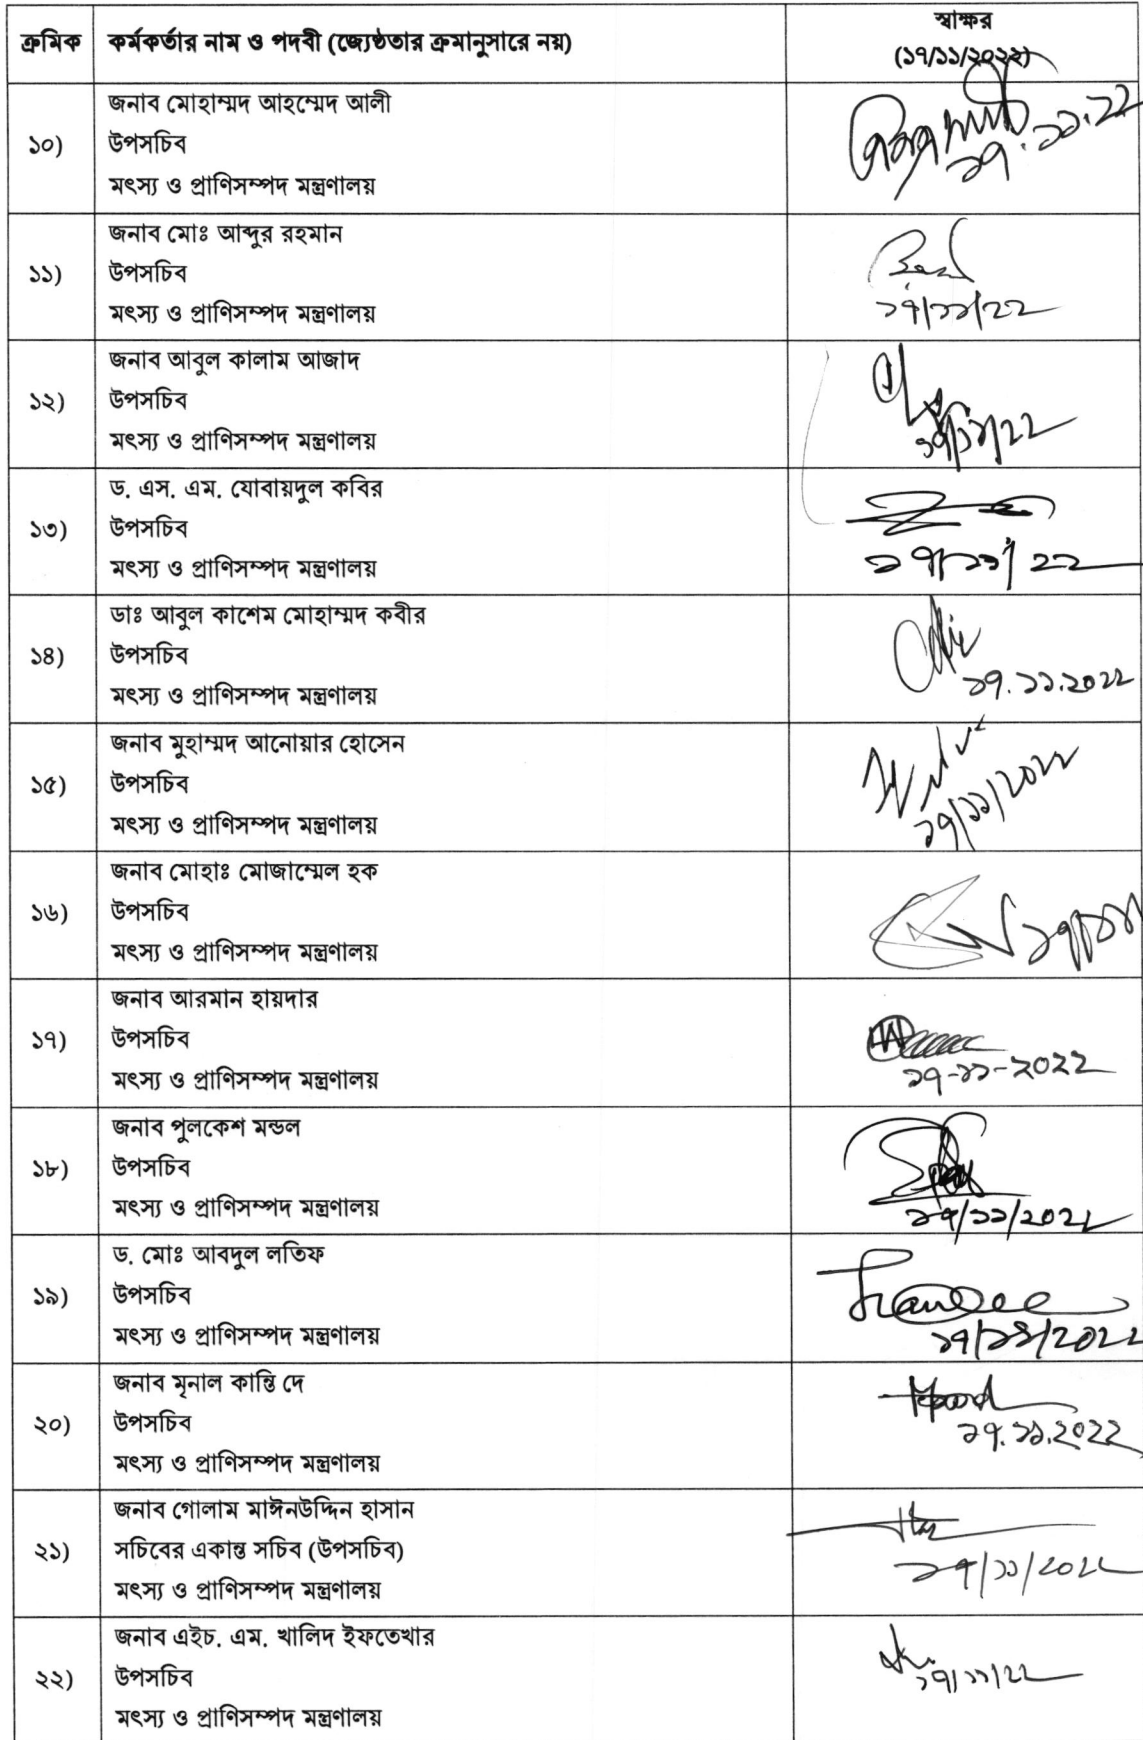 ক্রমিক
কর্মকর্তার নাম ও পদবী (জ্যেষ্ঠতার ক্রমানুসারে নয়)
স্বাক্ষর
(১৭/১১/২০২২)
১০)
জনাব মোহাম্মদ আহম্মেদ আলী
উপসচিব
মৎস্য ও প্রাণিসম্পদ মন্ত্রণালয়
১৭.১১.22
১১)
জনাব মোঃ আব্দুর রহমান
উপসচিব
মৎস্য ও প্রাণিসম্পদ মন্ত্রণালয়
১৭/১১/22
১২)
জনাব আবুল কালাম আজাদ
উপসচিব
মৎস্য ও প্রাণিসম্পদ মন্ত্রণালয়
১৭/১১/22
১৩)
ড. এস. এম. যোবায়দুল কবির
উপসচিব
মৎস্য ও প্রাণিসম্পদ মন্ত্রণালয়
১৭/১১/22
১৪)
ডাঃ আবুল কাশেম মোহাম্মদ কবীর
উপসচিব
মৎস্য ও প্রাণিসম্পদ মন্ত্রণালয়
১৭.১১.২০২২
১৫)
জনাব মুহাম্মদ আনোয়ার হোসেন
উপসচিব
মৎস্য ও প্রাণিসম্পদ মন্ত্রণালয়
১৭/১১/২০২২
১৬)
জনাব মোহাঃ মোজাম্মেল হক
উপসচিব
মৎস্য ও প্রাণিসম্পদ মন্ত্রণালয়
১৭)
জনাব আরমান হায়দার
উপসচিব
মৎস্য ও প্রাণিসম্পদ মন্ত্রণালয়
১৭-১১-২০২২
১৮)
জনাব পুলকেশ মন্ডল
উপসচিব
মৎস্য ও প্রাণিসম্পদ মন্ত্রণালয়
১৭/১১/২০২২
১৯)
ড. মোঃ আবদুল লতিফ
উপসচিব
মৎস্য ও প্রাণিসম্পদ মন্ত্রণালয়
১৭/১১/২০২২
২০)
জনাব মৃনাল কান্তি দে
উপসচিব
মৎস্য ও প্রাণিসম্পদ মন্ত্রণালয়
১৭.১১.২০২২
২১)
জনাব গোলাম মাঈনউদ্দিন হাসান
সচিবের একান্ত সচিব (উপসচিব)
মৎস্য ও প্রাণিসম্পদ মন্ত্রণালয়
১৭/১১/২০২২
২২)
জনাব এইচ. এম. খালিদ ইফতেখার
উপসচিব
মৎস্য ও প্রাণিসম্পদ মন্ত্রণালয়
১৭/১১/২২